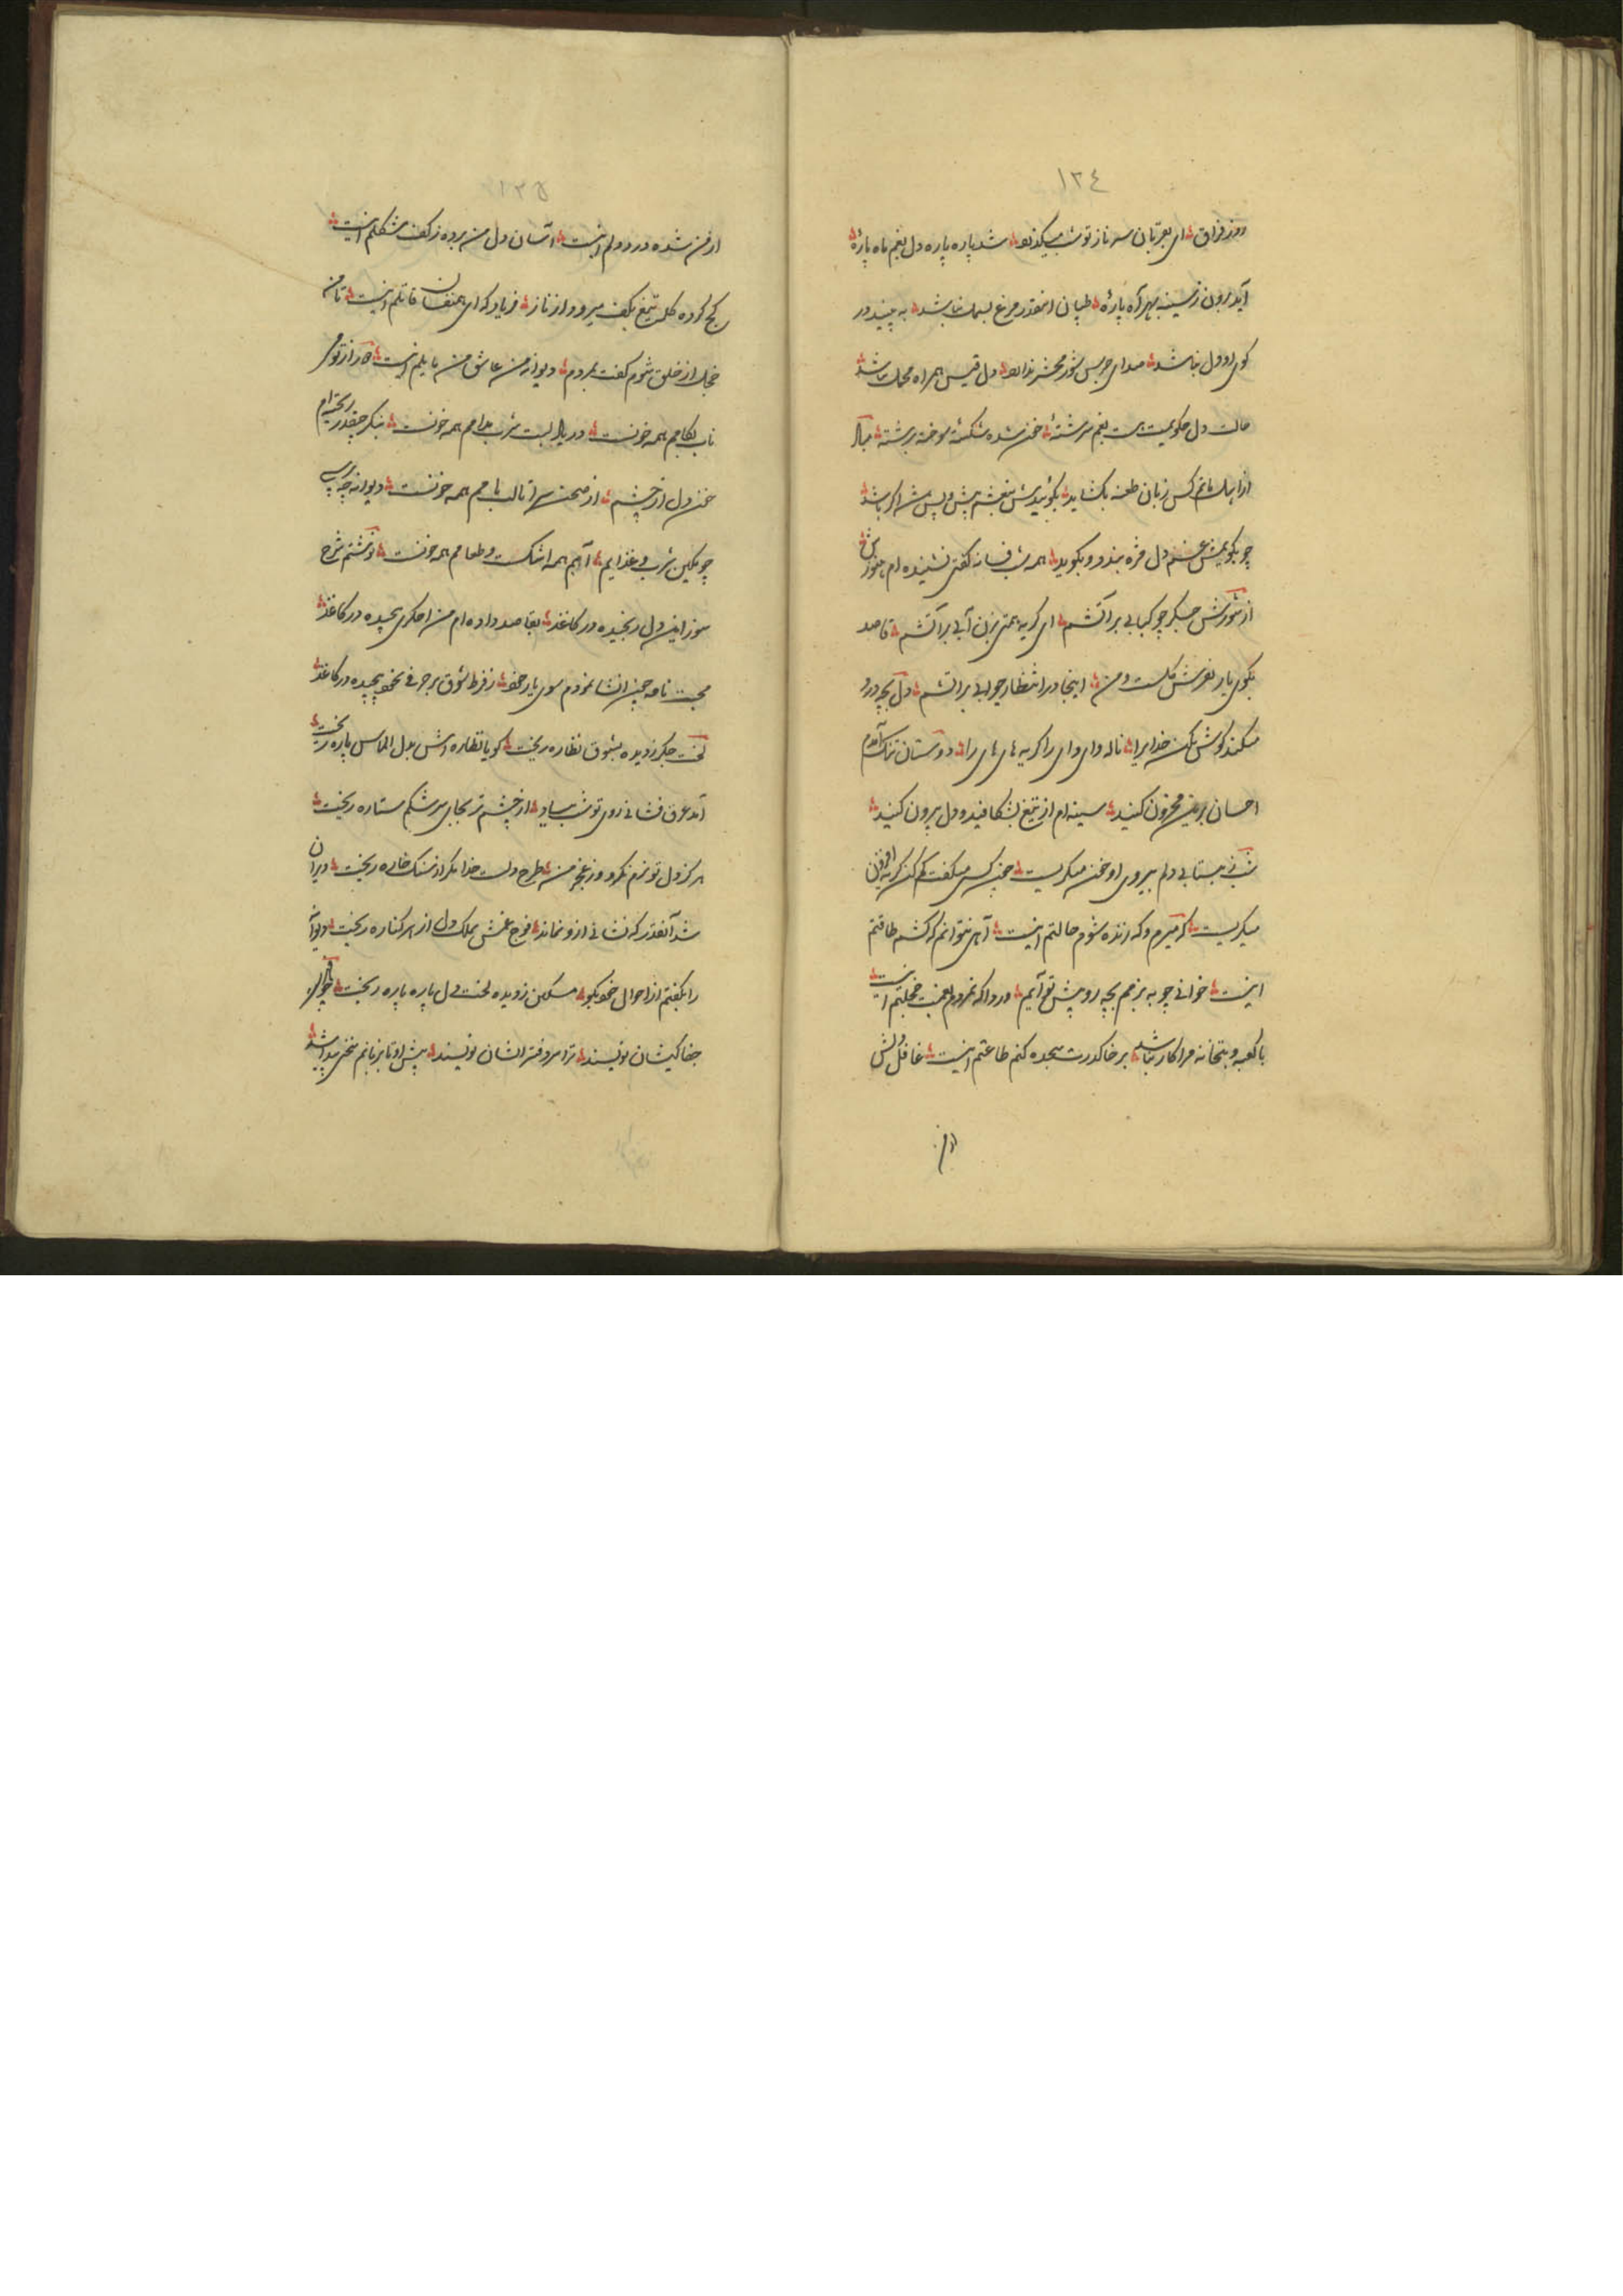 ١٣٤
روز فراق ای بقربان سر ناز تو شب میگذرد شد پاره پاره دل بغم ماه پارهٔ
آید برون ز سینه بهر آه پارهٔ طپان اینقدر مرغ بسمل نباشد به بینید در
کوی او دل نباشد صدای جرس شور محشر ندارد دل قیس همراه محمل نباشد
حالت دل چگویمت هست بغم سرشتهٔ خون شده شکستهٔ سوخته برشتهٔ
کس زبان طعنه بکشاید بگوئیدش پیش و پس باشد
چو بگویمش غم دل مژه بندد و بگوید همه شب فسانه گفتی نشنیده ام هنوزش
از شورش جگر چو کبابی بر آتشم ای گریه همتی بزن آبی بر آتشم قاصد
بکوی یار و من اینجا در انتظار جوابی بر آتشم دل بچه درد
میکند گوش بکن خدایرا ناله وای وای را گریه های های را دوستان تنک آمدم
احسان برین محزون کنید سینه ام از تیغ بشکافید و دل بیرون کنید
شب ز بیتابی دلم بیروی او خون میگریست چون کسی میگفت کم کن گریه افزون
میگریست که میرم و که زنده شوم حالتم اینست آهی نتوانم که کشم طاقتم
اینست خوانی چو به بزمم بچه رو پیش تو آیم دردا که نمردم بغمت خجلتم اینست
با کعبه و بتخانه مرا کار نباشد بر خاک درت سجده کنم طاعتم اینست غافل دلش
از من
١٣٥
از من شده درد دلم اینست آسان دل من برده ز کف مشکلم اینست
کج کرده کله تیغ بکف میرود از ناز فریاد که ای همنفسان قاتلم اینست تا من
خجل از خلق شوم گفت بمردم دیوانه من عاشق من مایلم اینست
ناب بکامم همه خونست دور از لبت شرب مدامم همه خونست بنگر چقدر ریخته ام
خون دل از چشم از صحن سرا تا لب بامم همه خونست دیوانه چه پرسی
چو مسکین شرب و غذایم آبم همه اشکست و طعامم همه خونست نوشتم شرح
سوز این دل رنجیده در کاغذ بقاصد داده ام من اخگری پیچیده در کاغذ
محبت نامه چون انشا نمودم سوی یار خود ز فرط شوق بر حرفی بخود پیچیده در کاغذ
لخت جگر ز دیده بشوق نظاره ریخت گویا نظاره اش بدل الماس پاره ریخت
آمد عرق فشانی روی تو شب بیاد از چشم تر بجای سرشکم ستاره ریخت
هرگز دل تو نرم نکرد و ز عجز من طرح دلت خدا مگر از سنگ خاره ریخت ویران
شد آنقدر که نشانی ازو نماند فوج غمش بملک دل از هر کناره ریخت دیوانه
را بگفتم از احوال خود بگو مسکین ز دیده لخت دل پاره پاره ریخت
جفا کیشان نویسند ترا سر دفتر ایشان نویسند پیش او تا بزبانم سخنی پیدا شد